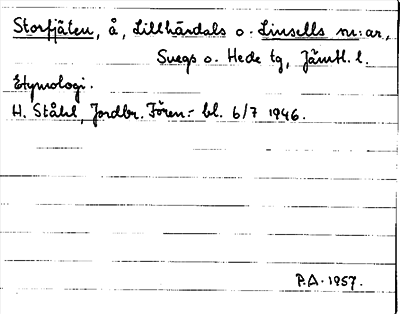 Storfjäten, å, Lillhärdals o. Linsells sn:ar,
Svegs o. Hede tg, Jämtl. l.
Etymologi.
H. Ståhl, Jordbr. Fören:- bl. 6/7 1946.
P.A. 1957.